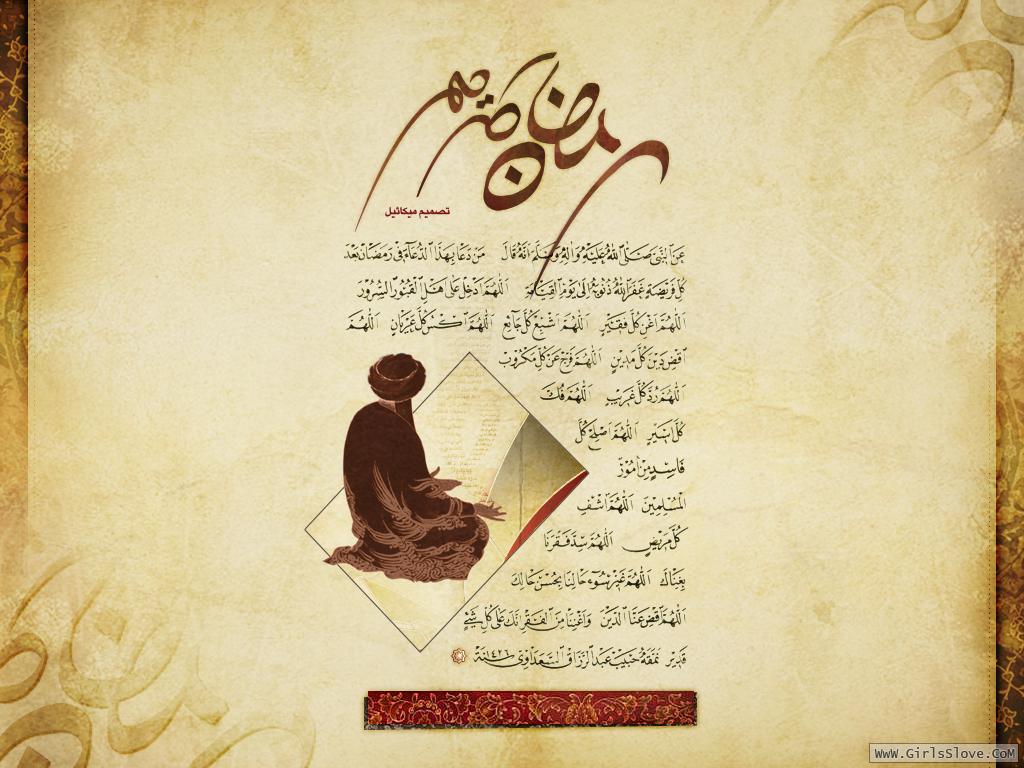 رمضان كريم
تصميم ميكائيل
عَنِ النَّبِيِّ صَلَّى اللهُ عَلَيْهِ وَآلِهِ وَسَلَّمَ أَنَّهُ قَالَ مَنْ دَعَا بِهَذَا الدُّعَاءِ فِي رَمَضَانَ بَعْدَ
كُلِّ فَرِيضَةٍ غَفَرَ اللهُ ذُنُوبَهُ إِلَى يَوْمِ الْقِيَامَةِ اَللّهُمَّ اَدْخِلْ عَلَى اَهْلِ الْقُبُورِ السُّرُورَ
اَللّهُمَّ اَغْنِ كُلَّ فَقِيرٍ اَللّهُمَّ اَشْبِعْ كُلَّ جَائِعٍ اَللّهُمَّ اكْسُ كُلَّ عُرْيَانٍ اَللّهُمَّ
اقْضِ دَيْنَ كُلِّ مَدِينٍ اَللّهُمَّ فَرِّجْ عَنْ كُلِّ مَكْرُوبٍ
اَللّهُمَّ رُدَّ كُلَّ غَرِيبٍ اَللّهُمَّ فُكَّ
كُلَّ اَسِيرٍ اَللّهُمَّ اَصْلِحْ كُلَّ
فَاسِدٍ مِنْ اُمُورِ
الْمُسْلِمِينَ اَللّهُمَّ اشْفِ
كُلَّ مَرِيضٍ اَللّهُمَّ سُدَّ فَقْرَنَا
بِغِنَاكَ اَللّهُمَّ غَيِّرْ سُوءَ حَالِنَا بِحُسْنِ حَالِكَ
اَللّهُمَّ اقْضِ عَنَّا الدَّيْنَ وَاَغْنِنَا مِنَ الْفَقْرِ اِنَّكَ عَلَى كُلِّ شَيْءٍ
قَدِيرٌ نَمَّقَهُ حَبِيب عَبْد الرَّزَّاق السَّعْدَاوِي سَنَة ١٤٢٦
WwW.GirlsSlove.CoM